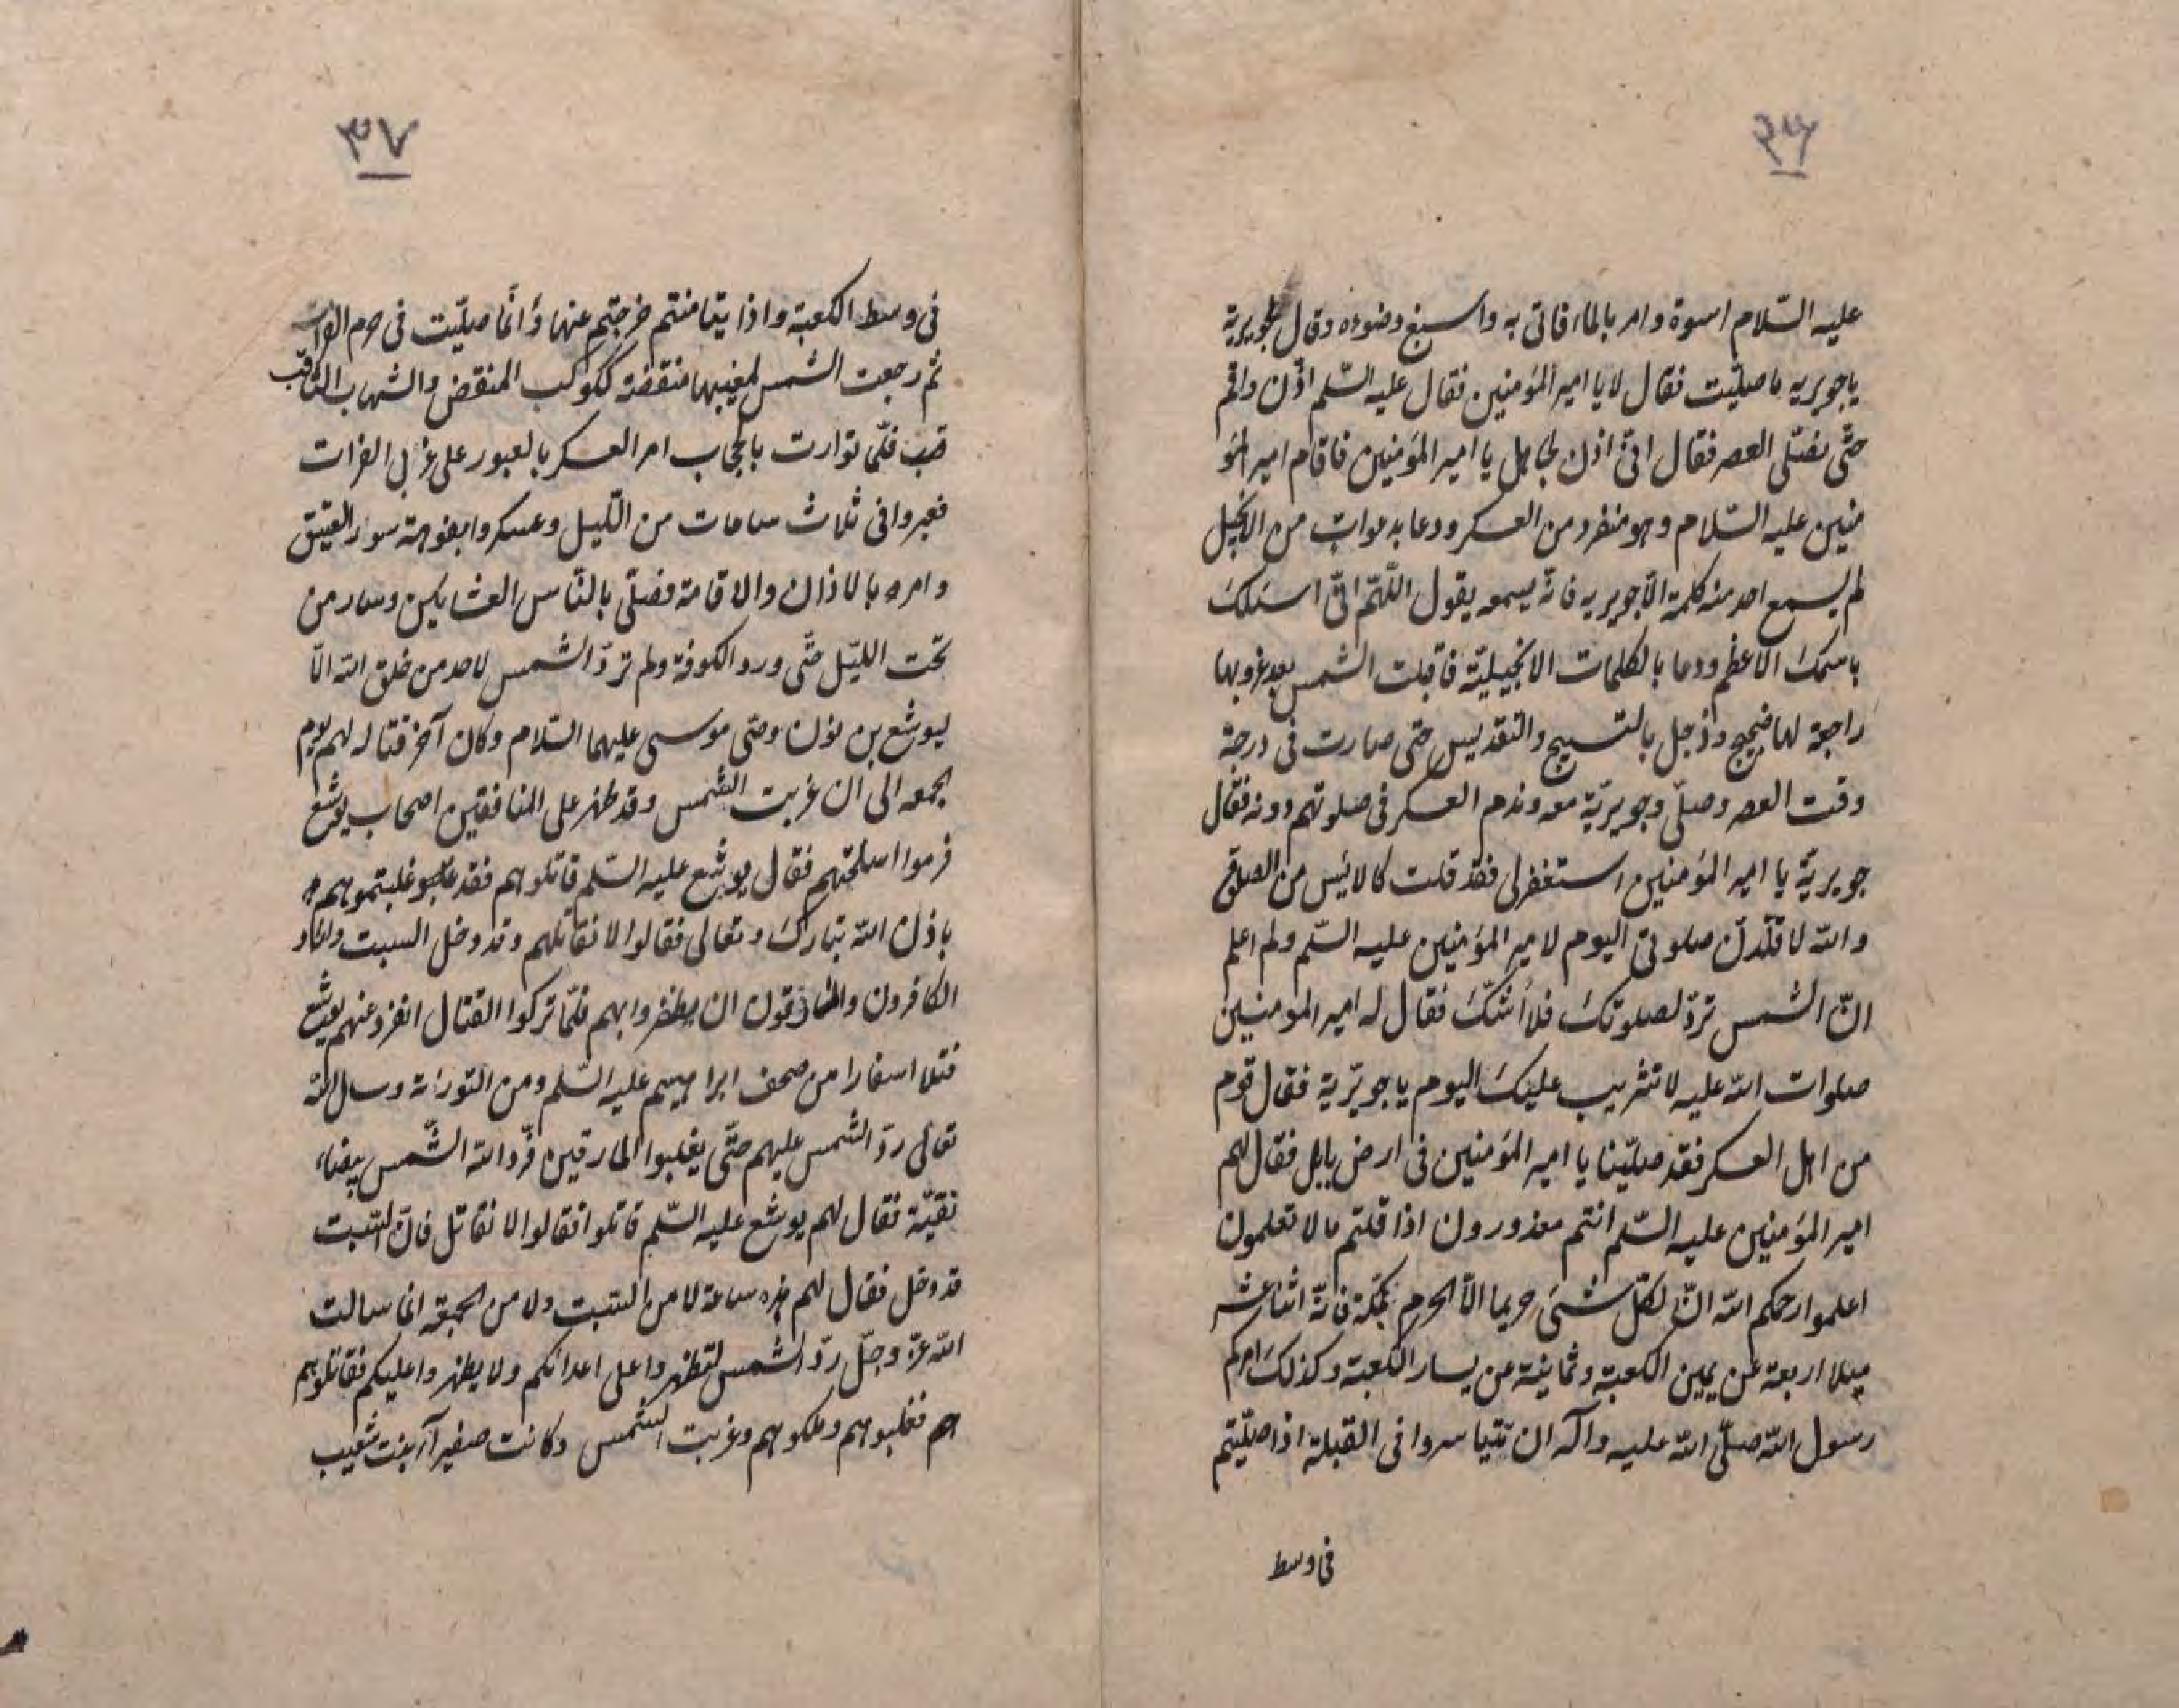 ٣٦
عليه السّلام اسوة وامر بالماء فاتى به واسبغ وضوءه وقال لجويرية
يا جويريه ما صلّيت فقال لا يا امير المؤمنين فقال عليه السّلم اذّن واقم
حتّى نصّلى العصر فقال انّى اذن يا امير المؤمنين فاقام امير المؤ
منين عليه السّلام وهو منفرد من العسكر ودعا بدعوات من الانجيل
لم يسمع احد منه كلمة الّا جويريه فانّه يسمعه يقول اللّهم انّى اسئلك
باسمك الاعظم ودعا بالكلمات الانجيليّة فاقبلت الشمس بعد غروبها
راجعة لها ضجيج وزجل بالتسبيح والتقديس حتى صارت فى درجة
وقت العصر وصلّى وجويريّة معه وندم العسكر فى صلوتهم دونه فقال
جويريّة يا امير المؤمنين استغفر لى فقد قلت كالائيس من الصلوة
والله لاقلّدنّ صلوتى اليوم لامير المؤمنين عليه السّلم ولم اعلم
انّ الشمس تردّ لصلوتك فلا أشكّ فقال له امير المومنين
صلوات الله عليه لا تثريب عليك اليوم يا جويريّة فقال قوم
من اهل العسكر فقد صلّينا يا امير المؤمنين فى ارض بابل فقال لهم
امير المؤمنين عليه السّلم انتم معذورون اذا قلتم ما لا تعلمون
اعلموا رحمكم الله انّ لكلّ شىء حريما الّا الحرم بمكّة فانّه اثنا عشر
ميلا اربعة عن يمين الكعبة وثمانية عن يسار الكعبة وكذلك امركم
رسول الله صلّى الله عليه وآله ان تتياسروا فى القبلة اذا صلّيتم
فى وسط
٣٧
فى وسط الكعبة واذا تيامنتم خرجتم عنها وانّما صلّيت فى حرم الفرات
ثم رجعت الشمس لمغيبها منقضة ككوكب المنقض والشهاب الثاقب
قب فلمّا توارت بالحجاب امر العسكر بالعبور على الفرات
فعبروا فى ثلاث ساعات من اللّيل وعسكروا بفوهة سور العتيق
وامره بالاذان والاقامة فصلّى بالنّاس العشايين وسار من
تحت الليّل حتّى ورد الكوفة ولم تردّ الشمس لاحد من خلق الله الّا
ليوشع بن نون وصّى موسى عليهما السّلام وكان آخر قتاله لهم يوم
الجمعه الى ان غربت الشمس وقد ظهر على المنافقين اصحاب يوشع
فرموا اسلحتهم فقال يوشع عليه السّلم قاتلوهم فقد غلبتموهم
باذن الله تبارك وتعالى فقالوا لا نقاتلهم وقد دخل السبت وكاد
الكافرون والمنافقون ان يظفروا بهم فلمّا تركوا القتال انفرد عنهم يوشع
فتلا اسفارا من صحف ابراهيم عليه السّلم ومن التوراة وسال الله
تعالى ردّ الشمس عليهم حتّى يغلبوا المارقين فردّ الله الشّمس بيضاء
نقيّة فقال لهم يوشع عليه السّلم قاتلوا فقالوا لا نقاتل فانّ السّبت
قد دخل فقال لهم هذه ساعة لا من السّبت ولا من الجمعة انا سالت
الله عزّ وجلّ ردّ الشمس لتظهروا على اعدائكم ولا يظهروا عليكم فقاتلوهم
هم فغلبوهم وملكوهم وغربت الشّمس وكانت صفيراء بنت شعيب